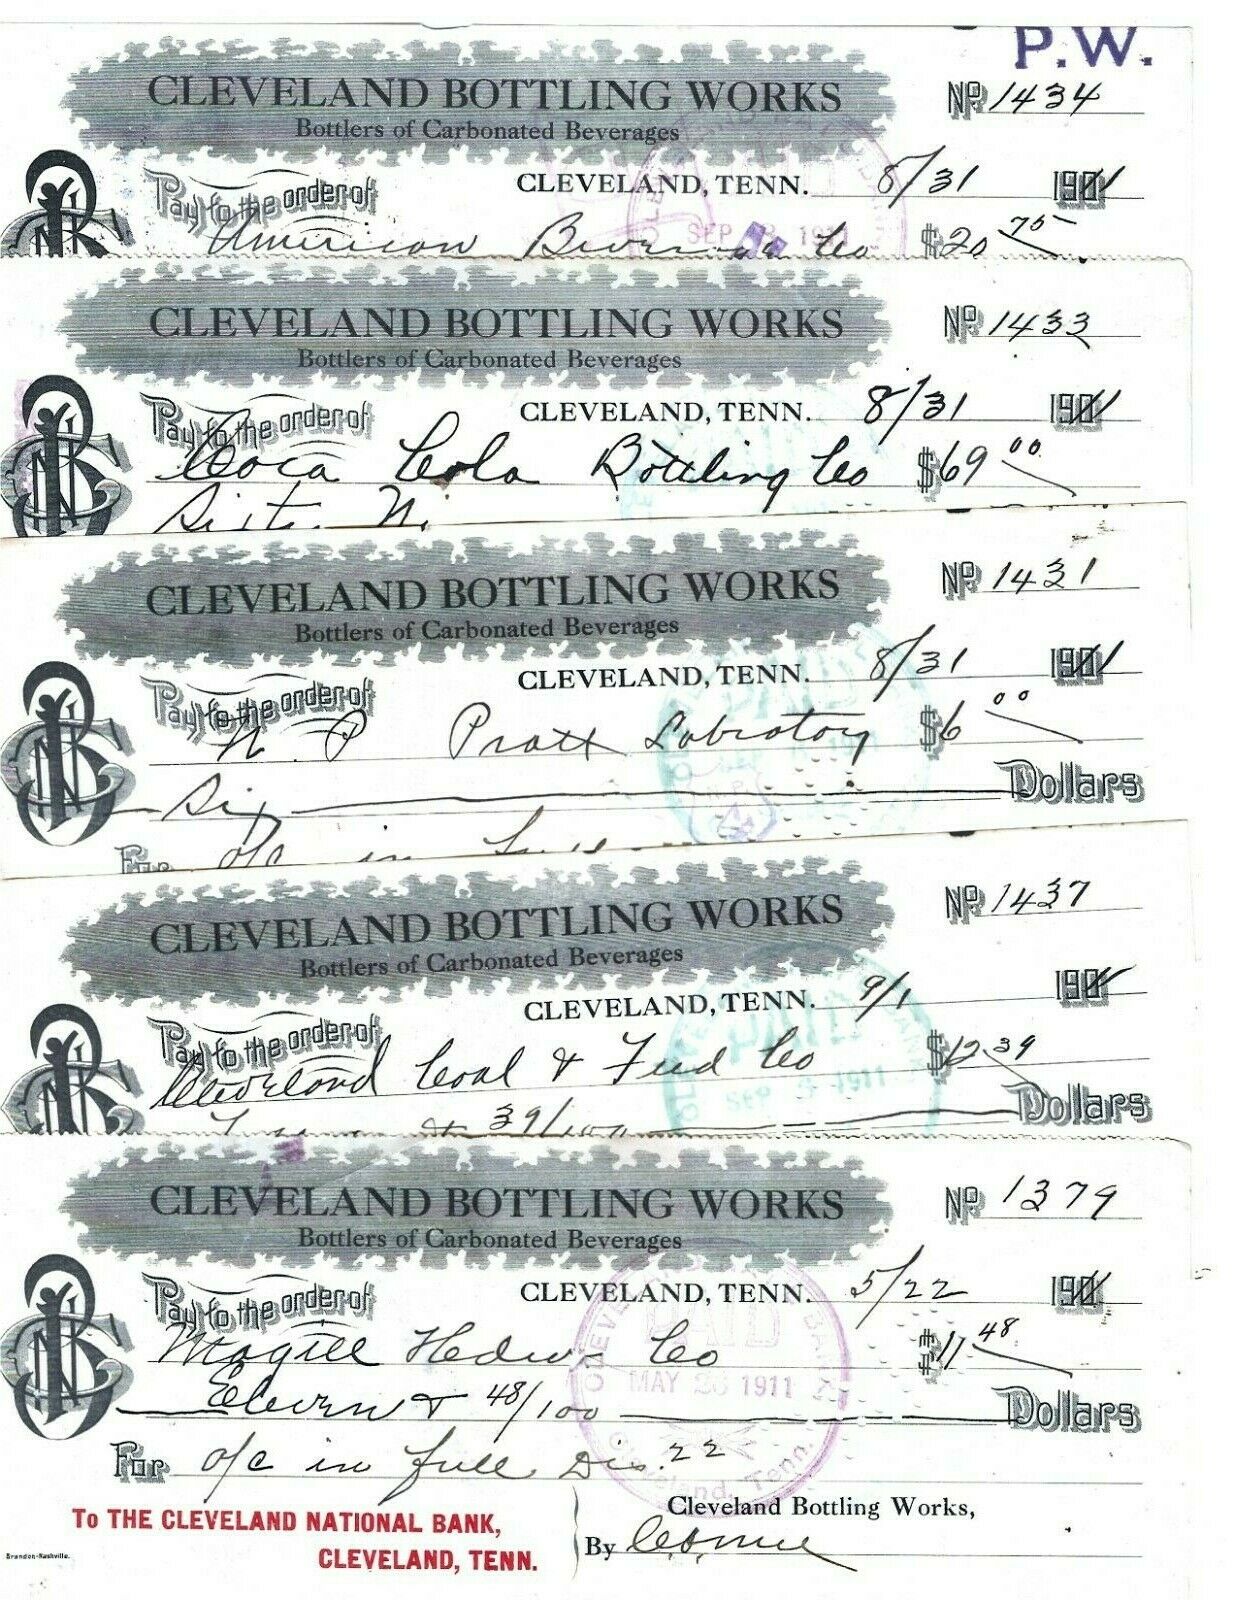 P.W.
CLEVELAND BOTTLING WORKS
Bottlers of Carbonated Beverages
No 1434
CLEVELAND, TENN. 8/31 1911
Pay to the order of
American Beverage Co $20 75
CLEVELAND BOTTLING WORKS
Bottlers of Carbonated Beverages
No 1433
CLEVELAND, TENN. 8/31 1911
Pay to the order of
Coca Cola Bottling Co $69 00
Sixty N
CLEVELAND BOTTLING WORKS
Bottlers of Carbonated Beverages
No 1431
CLEVELAND, TENN. 8/31 1911
Pay to the order of
N. P Pratt Labratory $6 00
Six Dollars
For o/c in
CLEVELAND BOTTLING WORKS
Bottlers of Carbonated Beverages
No 1437
CLEVELAND, TENN. 9/1 1911
Pay to the order of
Cleveland Coal & Feed Co $12 39
39/100 Dollars
PAID
SEP 1911
CLEVELAND BOTTLING WORKS
Bottlers of Carbonated Beverages
No 1379
CLEVELAND, TENN. 5/22 1911
Pay to the order of
Magill Hedw Co $11 48
Eleven & 48/100 Dollars
PAID
MAY 26 1911
Cleveland, Tenn.
For o/c in full Dis. 22
To THE CLEVELAND NATIONAL BANK,
CLEVELAND, TENN.
Cleveland Bottling Works,
By
Brandon-Nashville.